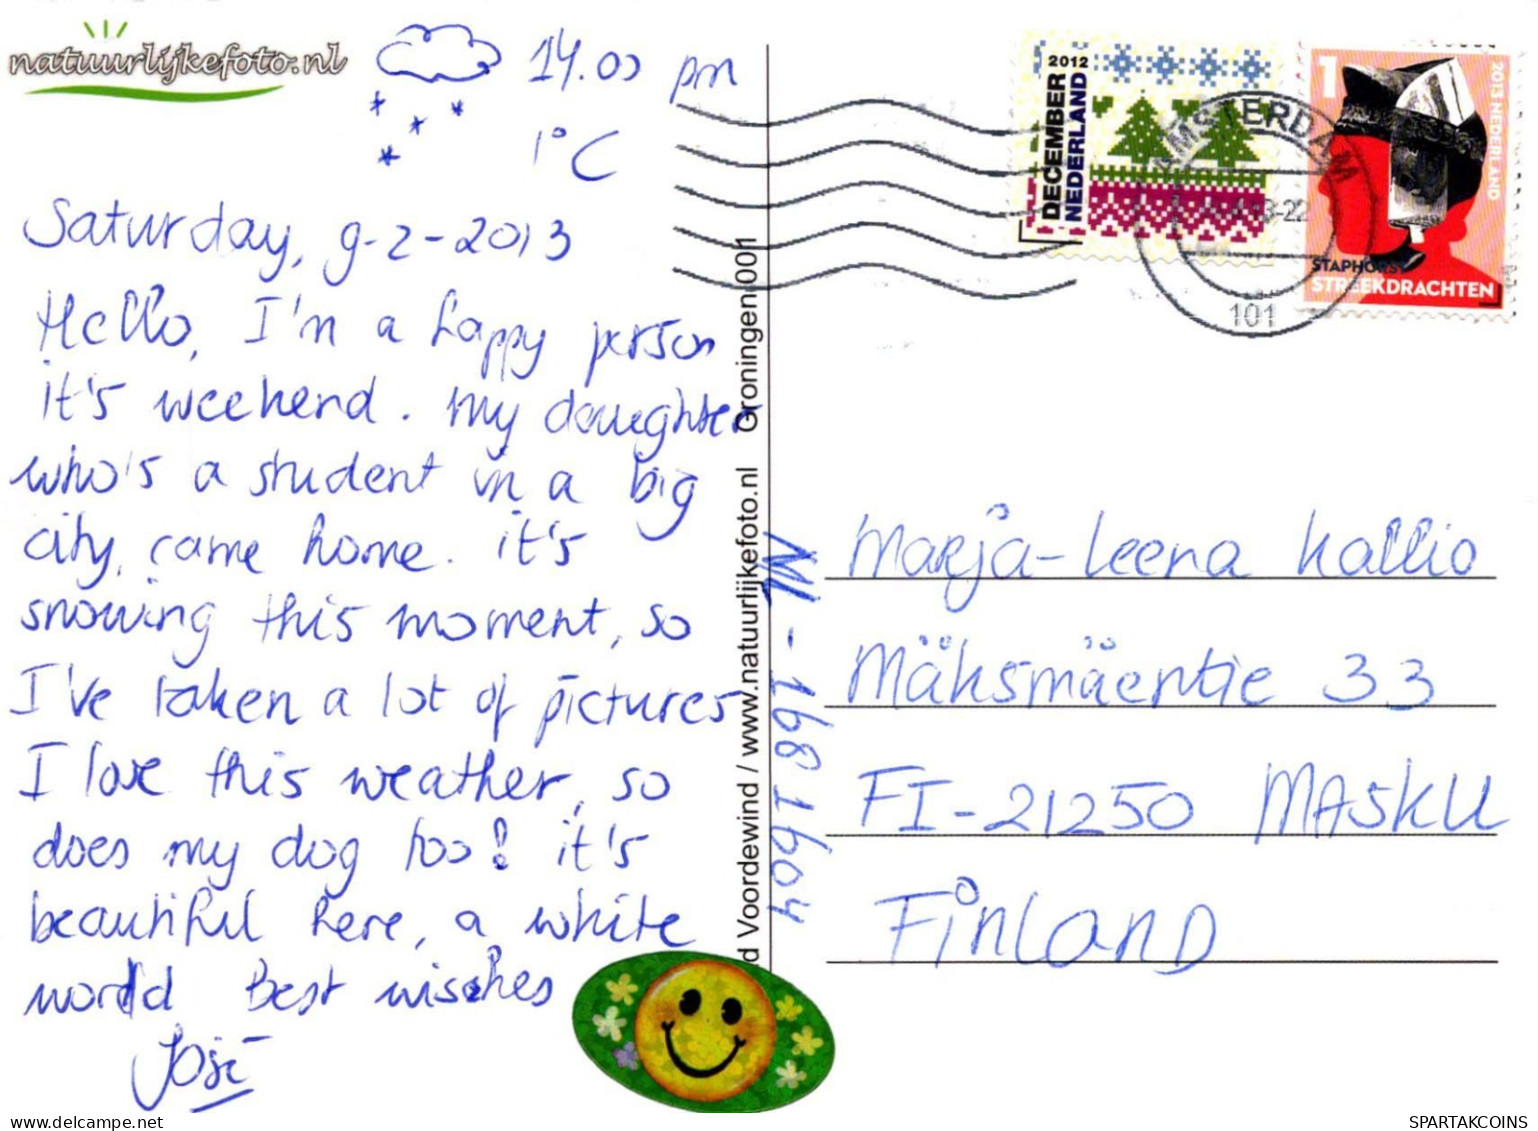 natuurlijkefoto.nl
14.00 pm
1°C
Saturday, 9-2-2013
Hello, I'm a happy person
it's weekend. My daughter
who's a student in a big
city, came home. it's
snowing this moment, so
I've taken a lot of pictures
I love this weather, so
does my dog too! it's
beautiful here, a white
world Best wisches
José
d Voordewind / www.natuurlijkefoto.nl Groningen 001
NL-1681604
DECEMBER 2012
NEDERLAND
AMSTERDAM
101
1
2013 NEDERLAND
STAPHORST
STREEKDRACHTEN
Marja-Leena Kallio
Mäksmäentie 33
FI-21250 MASKU
FinLanD
delcampe.net
SPARTAKCOINS